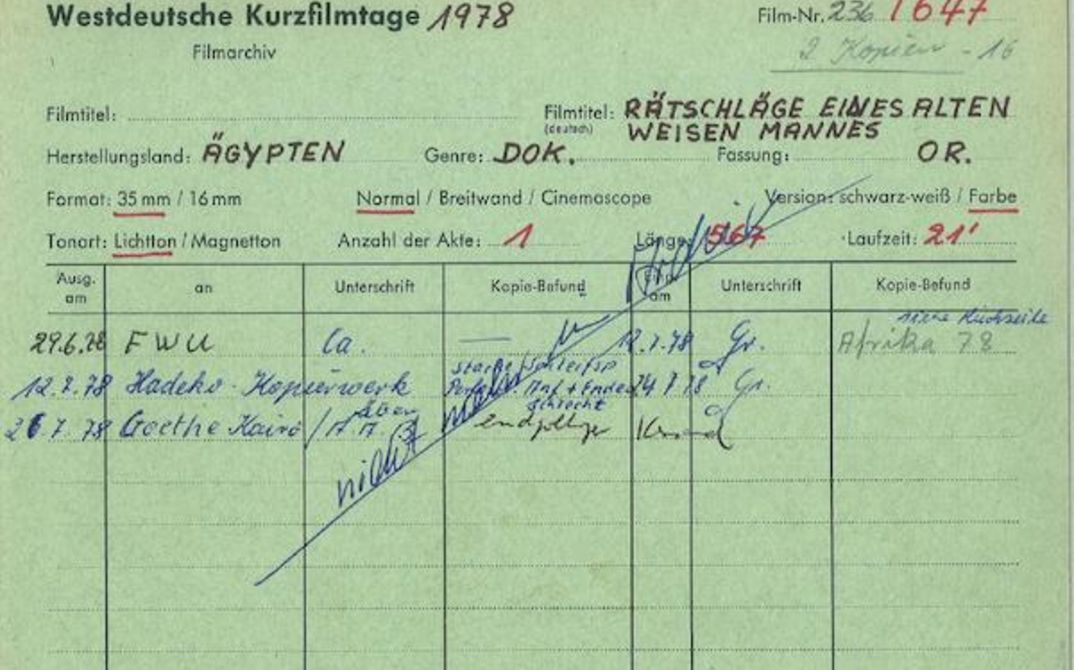 Westdeutsche Kurzfilmtage 1978
Filmarchiv
Film-Nr. 236 1647
2 Kopien - 16
Filmtitel:
Filmtitel: RÄTSCHLÄGE EINES ALTEN
(deutsch) WEISEN MANNES
Herstellungsland: ÄGYPTEN Genre: DOK. Fassung: OR.
Format: 35 mm / 16 mm Normal / Breitwand / Cinemascope Version: schwarz-weiß / Farbe
Tonart: Lichtton / Magnetton Anzahl der Akte: 1 Länge: 567 Laufzeit: 21'
Ausg. am an Unterschrift Kopie-Befund am Unterschrift Kopie-Befund
siehe Rückseite
29.6.78 FWU Ca. — 12.7.78 Gr. Afrika 78
starke Schleifsp
12.7.78 Hadeko-Kopierwerk Anf + Ende 24 7 78 Gr.
schlecht
26.7.78 Goethe Kairo / über
nicht mehr im Archiv